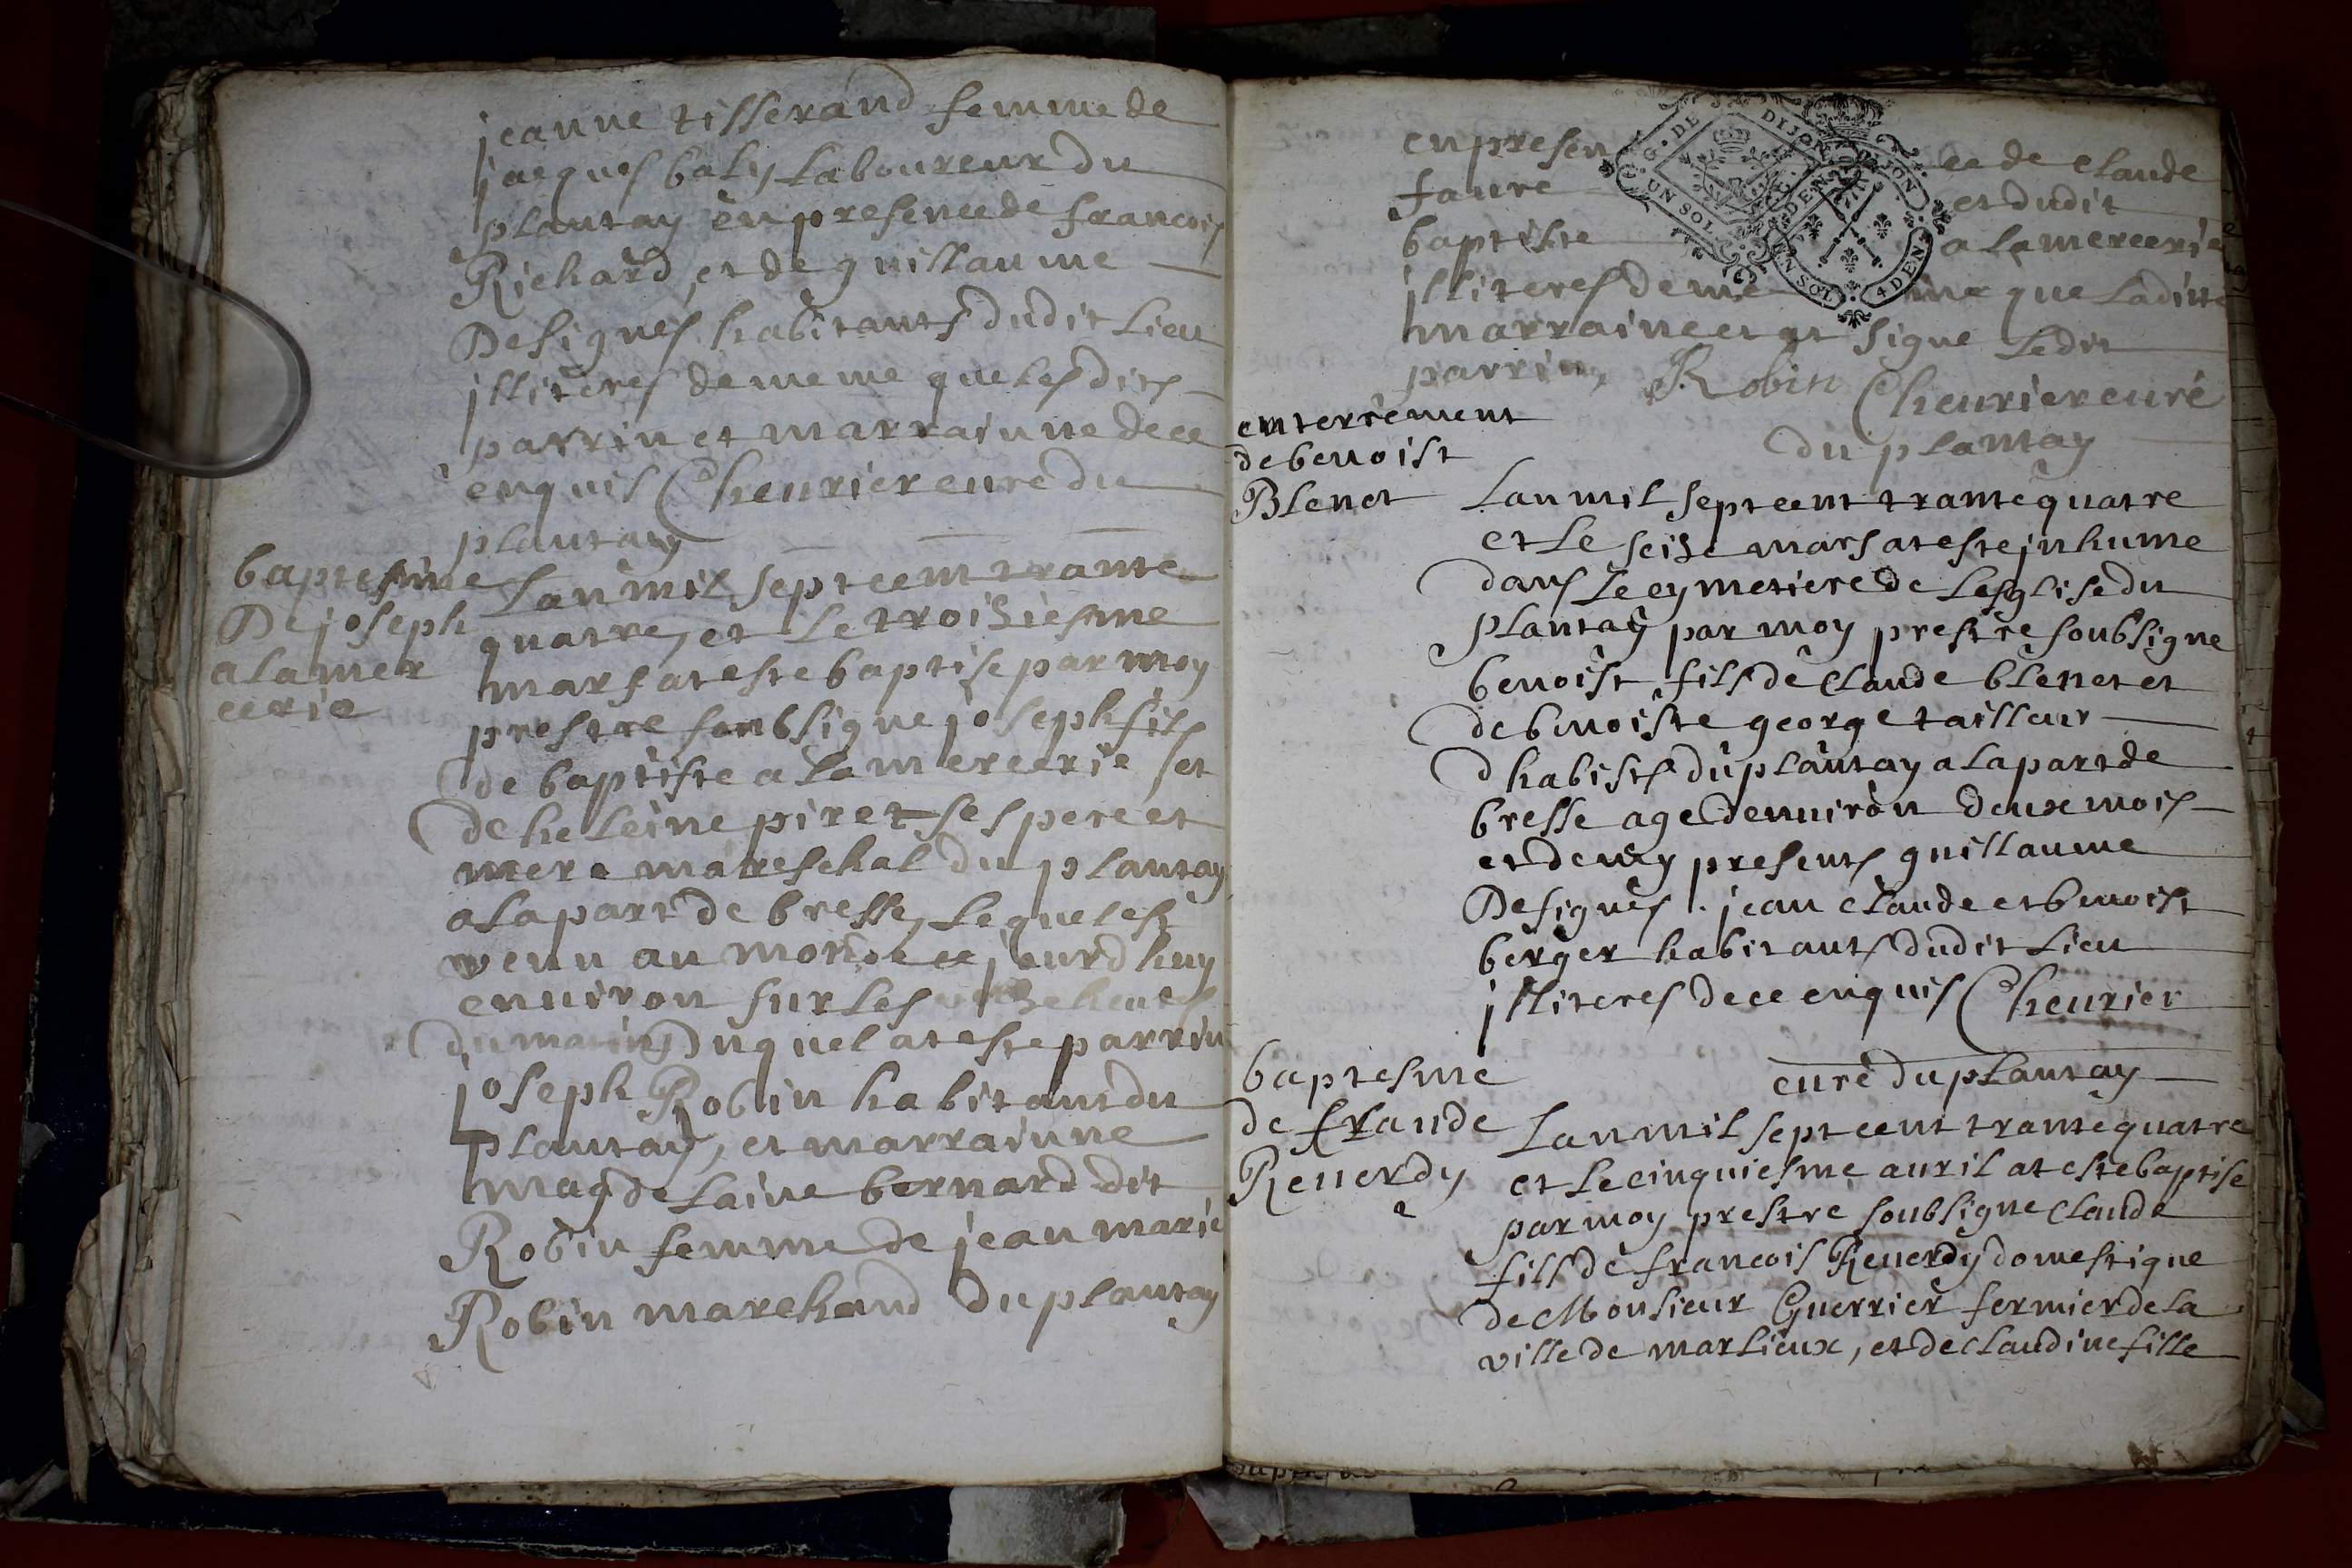 jeanne tisserand femme de
jacques baly Laboureur du
plantay en presence de francois
Richard, et de guillaume
Designes habitants dudit Lieu
jlliteres de meme que Lesdits
parrin et marrainne de ce
enquis Cheurier curé du
plantay
baptesme
De joseph
a la mer
cerie
Lan mil sept cent trante
quatre, et Le troisiesme
mars at este baptise par moy
prestre soubsigne joseph fils
de baptiste a La mercerie et
de heleine piret ses pere et
mere mareschal du plantay
a La part de bresse, Lequel est
venu au monde ce jourdhuy
enuiron sur Les heures
du matin Duquel at este parrin
joseph Robin habitant du
plantay, et marrainne
magdelaine bernard dit
Robin femme de jean marie
Robin marchand du plantay
en presen ce de claude
faure et dudit
baptiste a La mercerie
jlliteres de me me que Laditte
marraine et at signe Ledit
parrin, Robin Cheurier curé
du plantay
enterrement
de benoist
Blenet
Lan mil sept cent trante quatre
et Le seize mars at este jnhume
dans Le cymetiere de Lesglise du
plantay par moy prestre soubsigne
benoist fils de claude blenet et
de bnoiste george tailleur
dhabists du plantay a la part de
bresse age denuiron deux mois
et demy presents guillaume
Designes. jean claude et benoist
berger habitants dudit Lieu
jlliteres de ce enquis Cheurier
curé du plantay
baptesme
de claude
Reuerdy
Lan mil sept cent trante quatre
et Le cinquiesme auril at este baptise
par moy prestre soubsigne claude
fils de francois Reuerdy domestique
de Monsieur Guerrier fermier de La
ville de marlieux, et de claudine fille
UN SOL
G. DE DIJON
DIJON
UN SOL 4 DEN